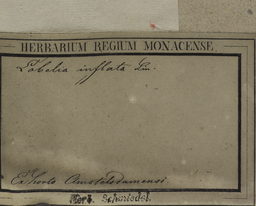 HERBARIUM REGIUM MONACENSE.
Lobelia inflata Lin.
Ex horto Amstelodamensi.
Herb. Schmiedel.